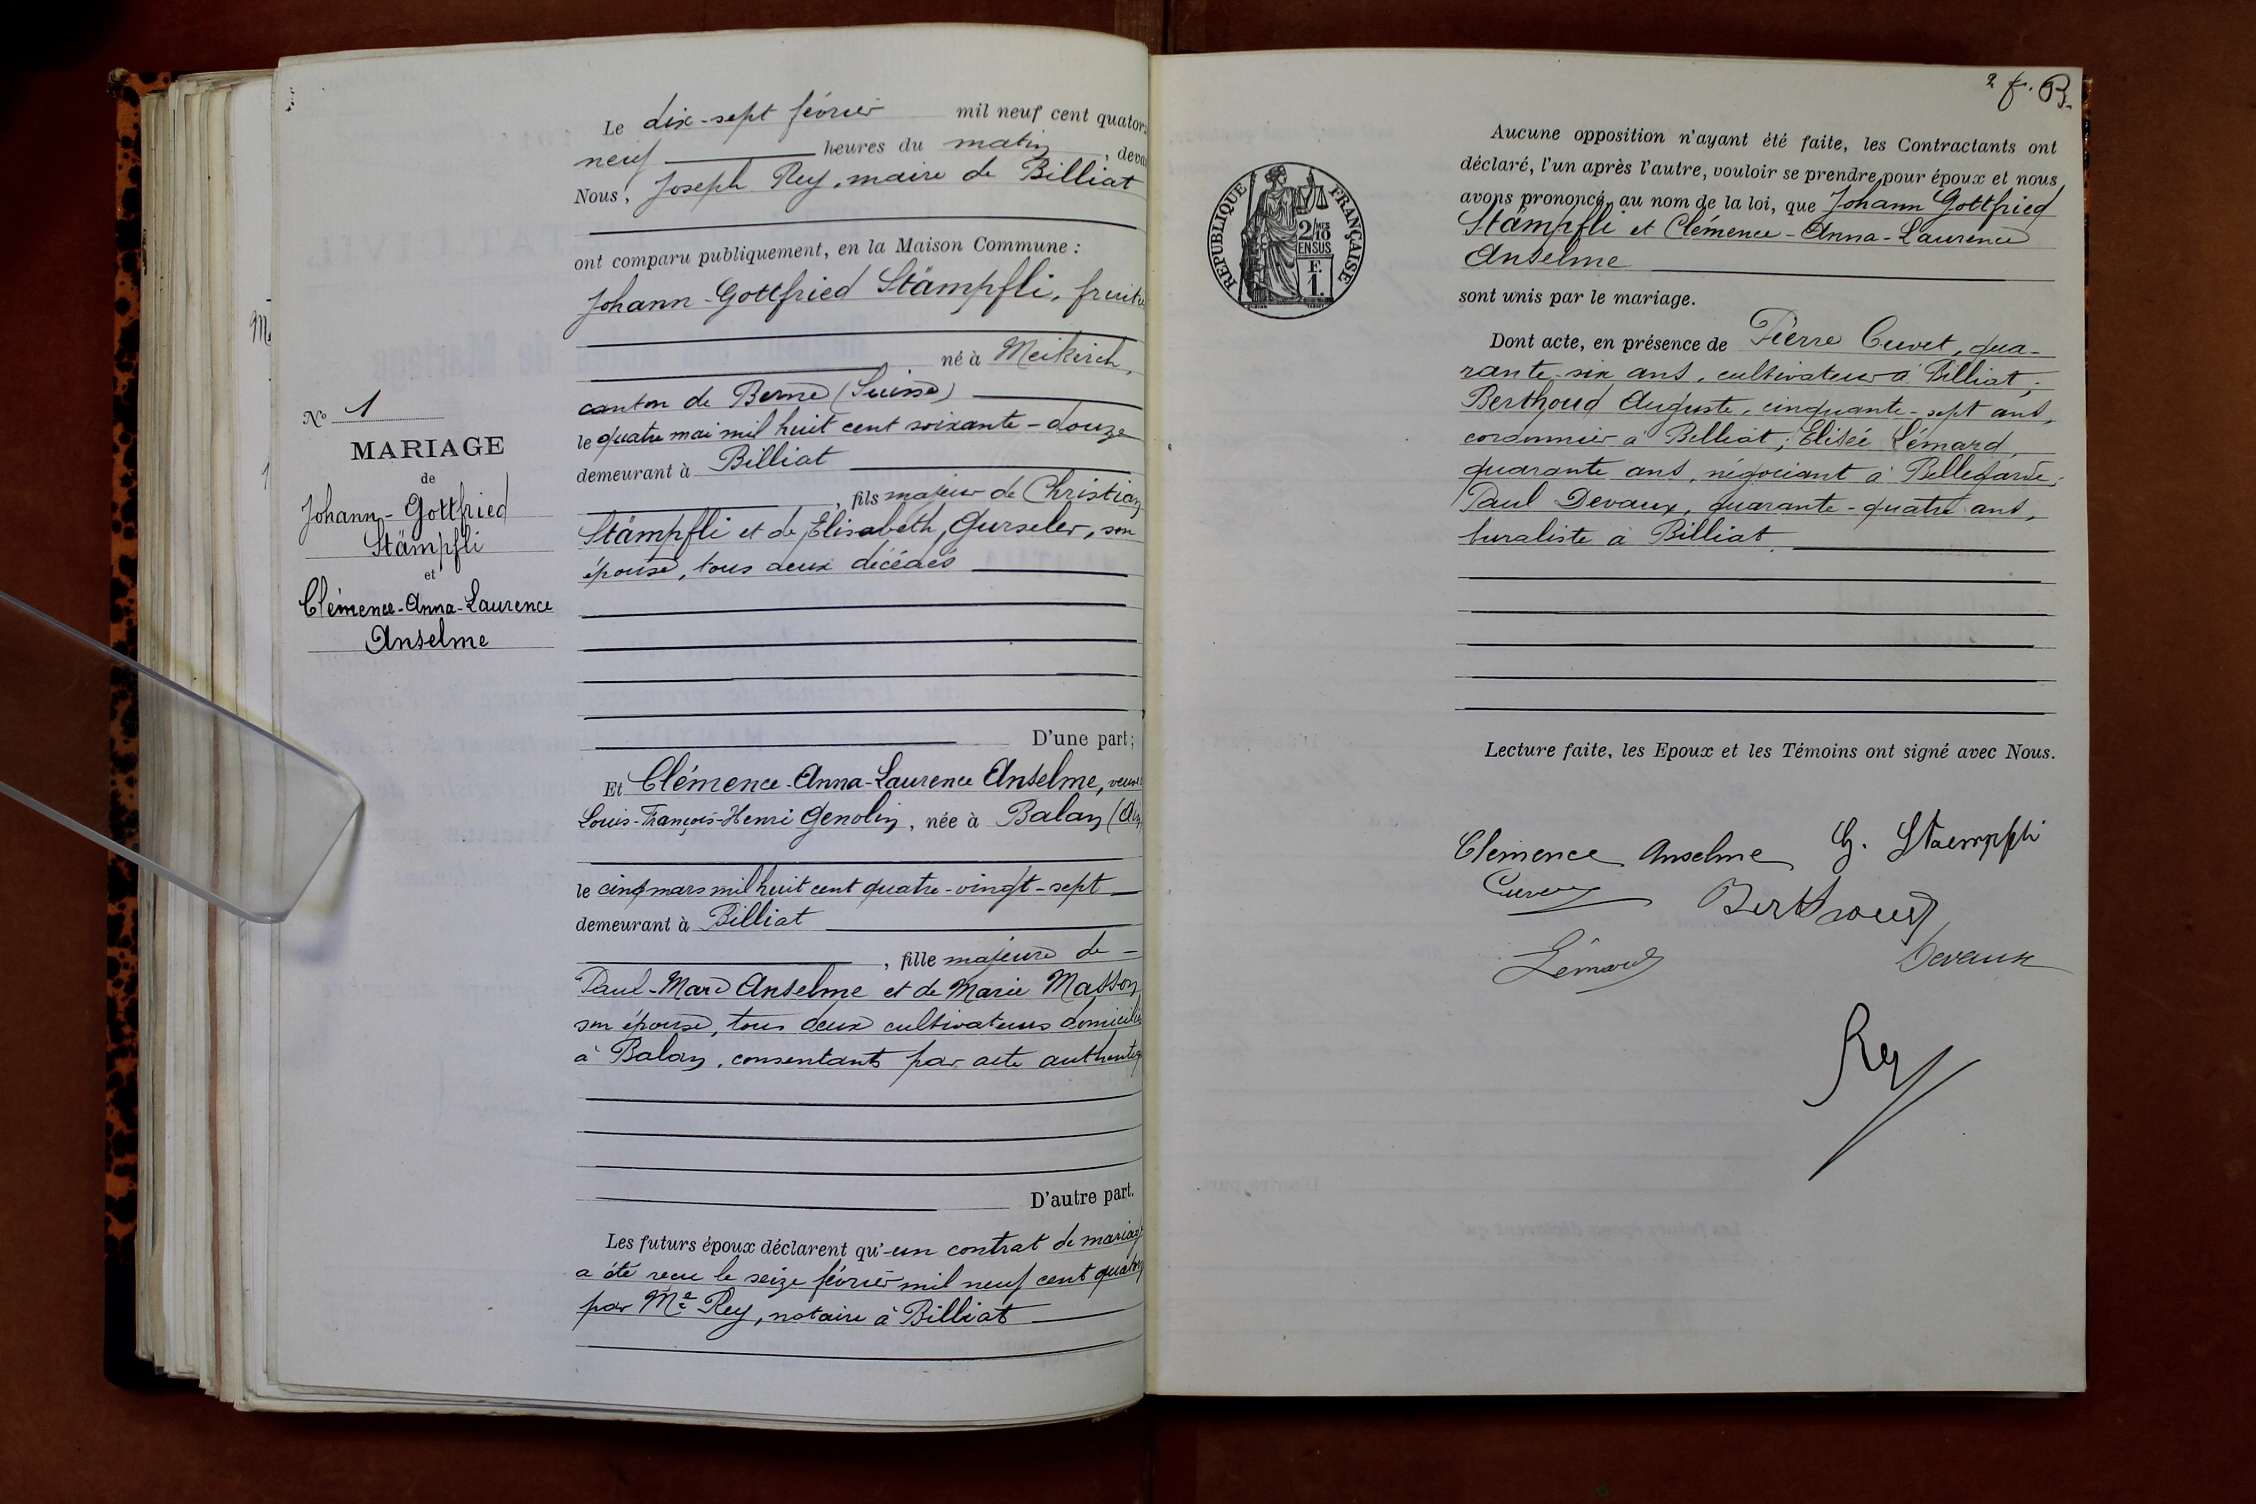 Le dix-sept février mil neuf cent quator
neuf heures du matin, deva
Nous, Joseph Rey, maire de Billiat
ont comparu publiquement, en la Maison Commune :
Johann-Gottfried Stämpfli, fruit
né à Meikirch,
canton de Berne (Suisse)
le quatre mai mil huit cent soixante-douze
demeurant à Billiat
, fils majeur de Christian
Stämpfli et de Elisabeth, Gurseler, son
épouse, tous deux décédés
D'une part;
Et Clémence-Anna-Laurence Anselme, veuve
Louis-François-Henri Genolin, née à Balan (Ain
le cinq mars mil huit cent quatre-vingt-sept
demeurant à Billiat
, fille majeure de
Paul-Marc Anselme et de Marie Masson
son épouse, tous deux cultivateurs domicilié
à Balan, consentants par acte authentiq
D'autre part.
Les futurs époux déclarent qu'un contrat de mariage
a été recu le seize février mil neuf cent quatorz
par Me Rey, notaire à Billiat
No 1
MARIAGE
de
Johann-Gottfried
Stämpfli
et
Clémence-Anna-Laurence
Anselme
2 f. B.
RÉPUBLIQUE FRANÇAISE
2/10
EN SUS
F.
1.
Aucune opposition n'ayant été faite, les Contractants ont
déclaré, l'un après l'autre, vouloir se prendre pour époux et nous
avons prononcé, au nom de la loi, que Johann Gottfried
Stämpfli et Clémence-Anna-Laurence
Anselme
sont unis par le mariage.
Dont acte, en présence de Pierre Cuvet, qua-
rante-six ans, cultivateur à Billiat;
Berthoud Auguste, cinquante-sept ans,
cordonnier à Billiat; Elisée Lémard,
quarante ans, négociant à Bellegarde;
Paul Devaux, quarante-quatre ans,
buraliste à Billiat.
Lecture faite, les Epoux et les Témoins ont signé avec Nous.
Clemence Anselme G. Staempfli
Berthoud
Lémard Devaux
Rey